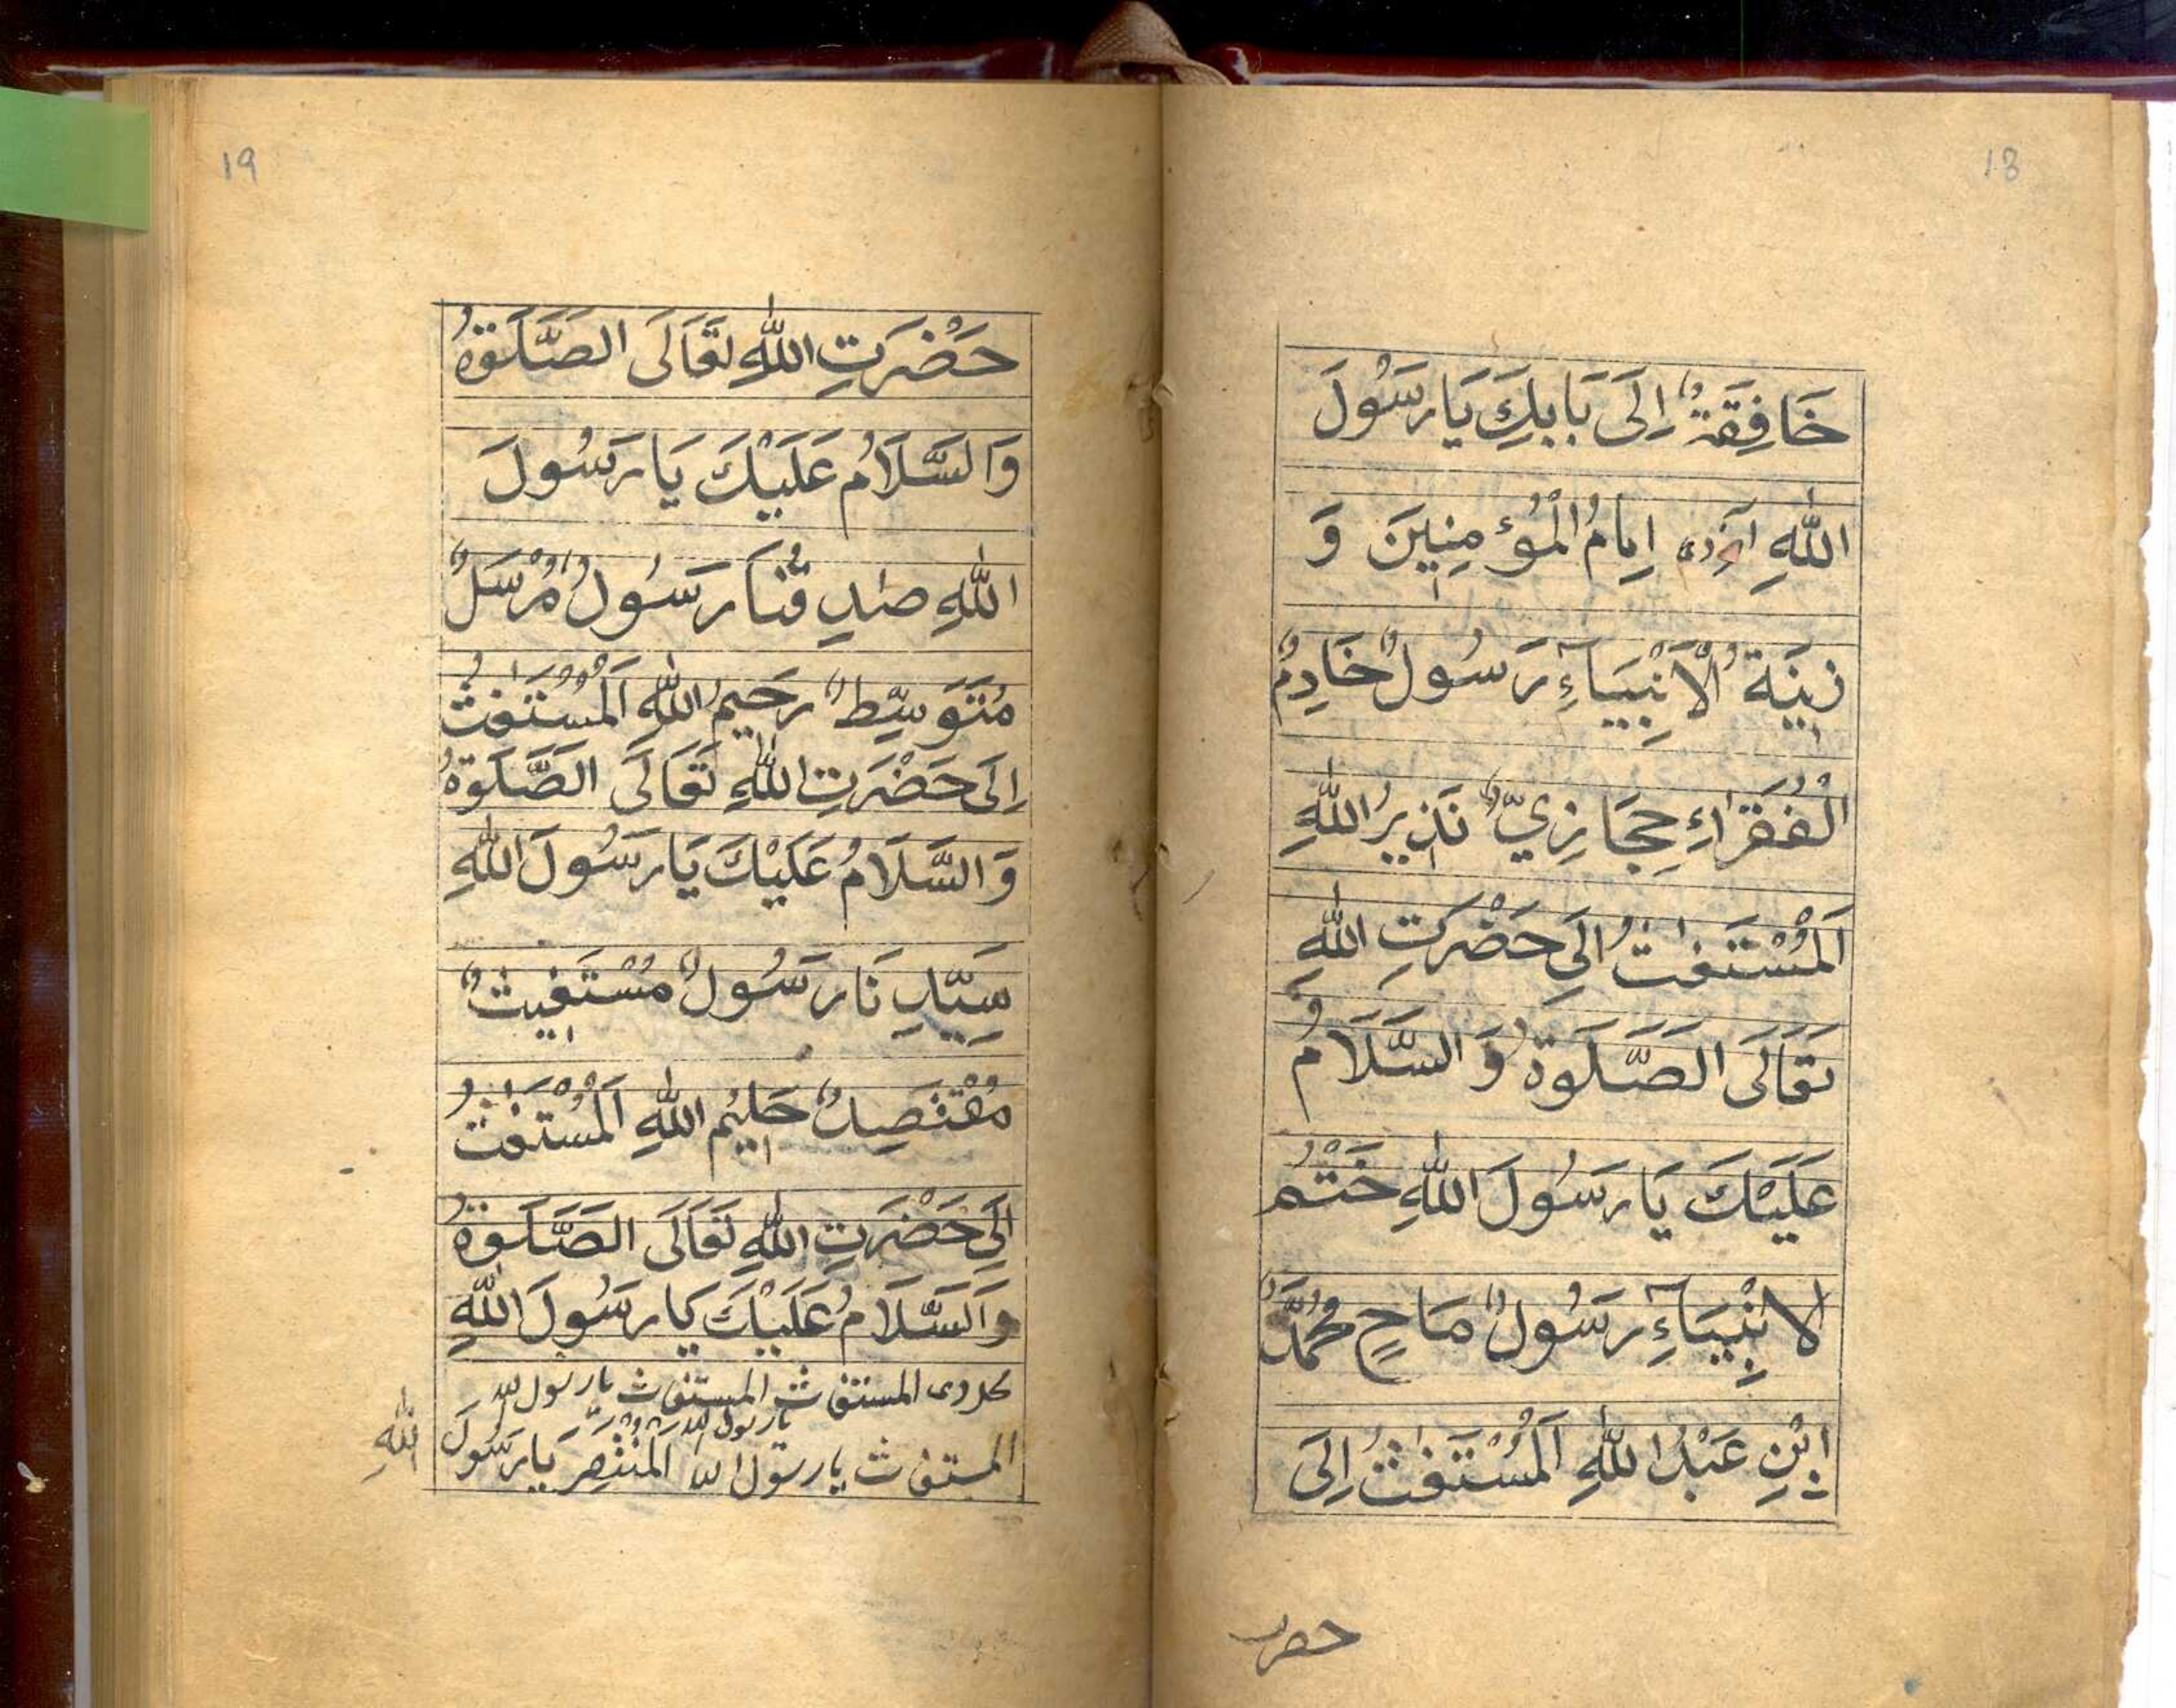 18
خَافِقَةٌ اِلَى بَابِكَ يَا رَسُولَ
اللّٰهِ اِمَامُ الْمُؤْمِنِينَ وَ
زِينَةُ الْاَنْبِيَآءِ رَسُولٌ خَادِمُ
الْفُقَرَاءِ حِجَازِيٌّ نَذِيرُ اللّٰهِ
اَلْمُسْتَغٰثُ اِلَى حَضْرَتِ اللّٰهِ
تَعَالَى الصَّلَوةُ وَ السَّلَامُ
عَلَيْكَ يَا رَسُولَ اللّٰهِ خَتْمُ
الانْبِيَآءِ رَسُولٌ مَاحٍ مُحَمَّدٌ
ابْنِ عَبْدُ اللّٰهِ اَلْمُسْتَغٰثُ اِلَى
حضرت
19
حَضْرَتِ اللّٰهِ تَعَالَى الصَّلَوةُ
وَالسَّلَامُ عَلَيْكَ يَا رَسُولَ
اللّٰهِ رَسُولٌ مُرْسَلٌ
مُتَوَسِّطٌ رَحِيمُ اللّٰهِ اَلْمُسْتَغٰثُ
اِلَى حَضْرَتِ اللّٰهِ تَعَالَى الصَّلَوةُ
وَ السَّلَامُ عَلَيْكَ يَا رَسُولَ اللّٰهِ
سَيِّدِنَا رَسُولٌ مُسْتَغِيثٌ
مُقْتَصِدٌ حَلِيمُ اللّٰهِ اَلْمُسْتَغٰثُ
اِلَى حَضْرَتِ اللّٰهِ تَعَالَى الصَّلَوةُ
وَالسَّلَامُ عَلَيْكَ يَا رَسُولَ اللّٰهِ
المستغاث المستغاث يا رسول الله
يا رسول الله
المستغاث يا رسول الله اَلْمُنْتَصِرَ يَا رَسُولَ اللّٰهِ